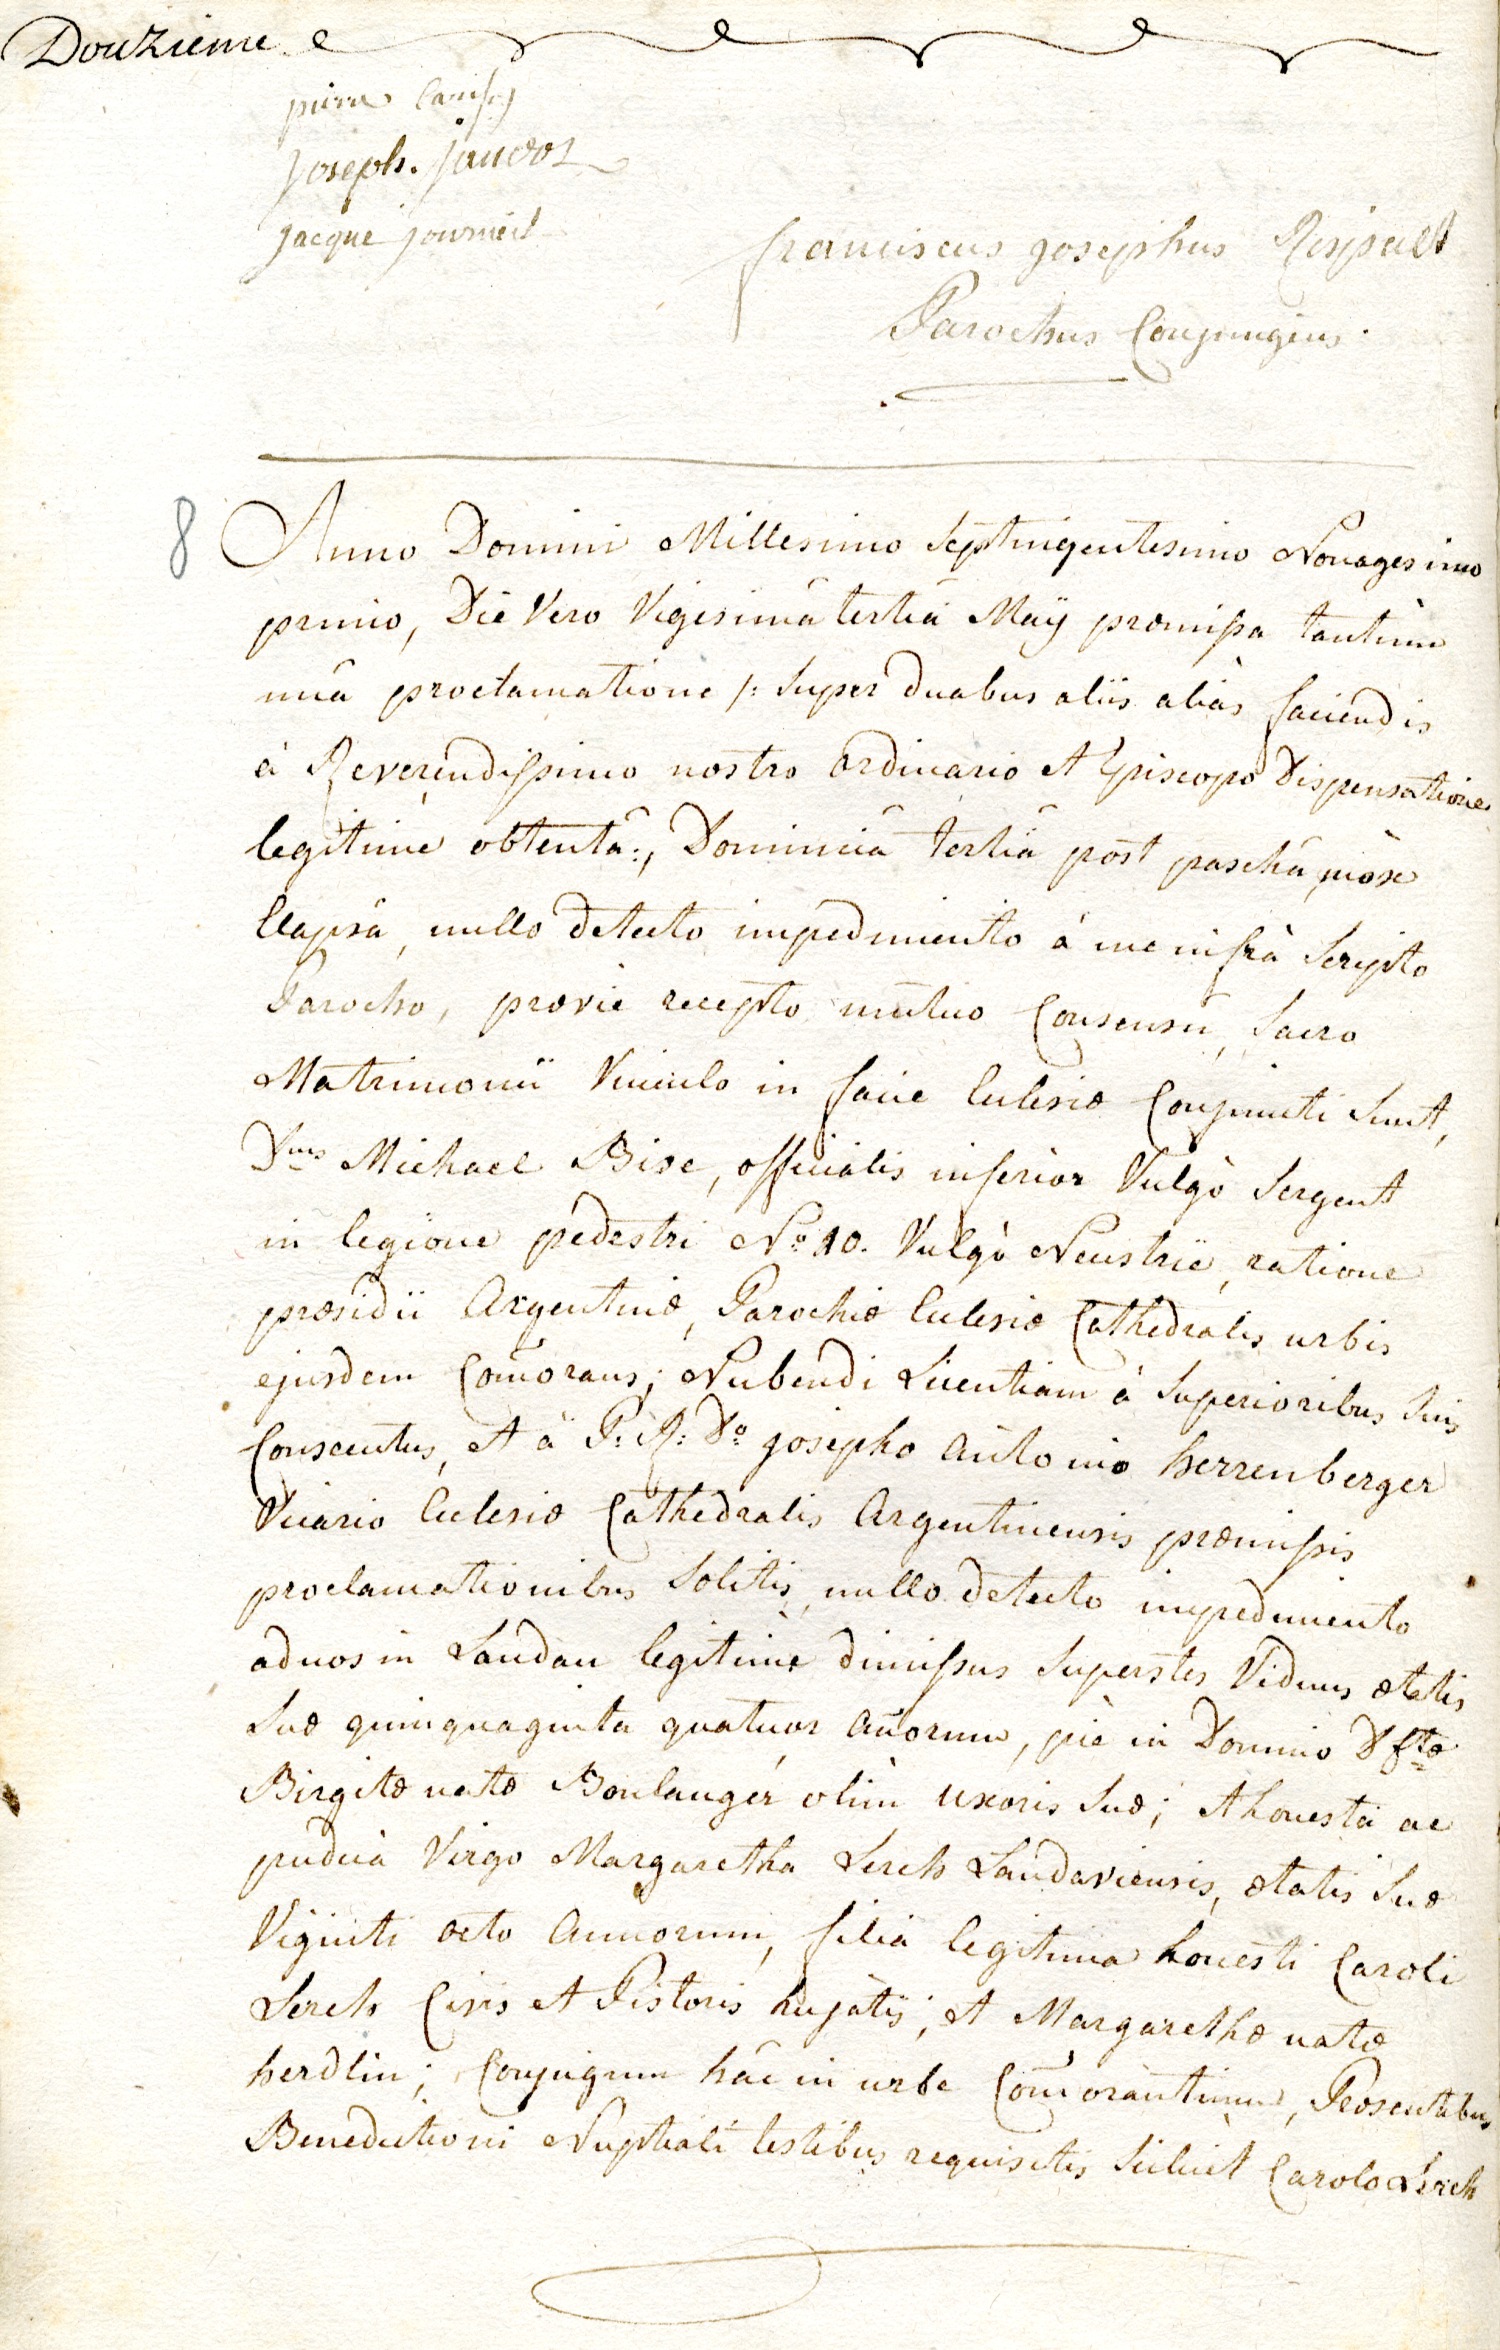 Douzieme
pierre
joseph. jaudos
jacque journeil
franciscus josephus Rispalt
Parochus Conjungens.
8
Anno Domini Millesimo Septingentesimo Nonagesimo
primo, Die Vero Vigesimâ tertiâ Maÿ præmissa tantùm
unâ proclamatione /: super duabus aliis aliàs faciendis
à Reverendissimo nostro ordinario et Episcopo Dispensatione
legitime obtentâ:, Dominicâ tertiâ post pascha, mox
Elapsâ, nullo detecto impedimento à me infrà Scripto
Parocho, prævie recepto mutuo Consensu, Sacro
Matrimonii Vinculo in facie Eclesiæ Conjuncti Sunt,
Dnus Michael Bise, officialis inferior Vulgò Sergent
in legione pedestri No. 10. Vulgò Neustrie, ratione
præsidii Argentinæ, Parochiæ Eclesiæ Cathedralis urbis
ejusdem Com̄orans; Nubendi Licentiam à Superioribus Suis
Consecutus, et à P: R: Do josepho antonio herrenberger
Vicario Eclesiæ Cathedralis Argentinensis præmissis
proclamationibus Solitis, nullo detecto impedimento
ad nos in Landau legitimè dimissus Superstes Viduus ætatis
Suæ quinquaginta quatuor an̄orum, piè in Domino Dfctæ
Birgitæ natæ Boulanger olim uxoris Suæ; et honesta ac
pudica Virgo Margaretha Lerch Landaviensis, ætatis Suæ
Viginti octo annorum, filia legitima honesti Caroli
Lerch Civis et Pistoris hujatis; et Margarethæ natæ
herdlin; Conjugum hac in urbe Com̄orantium, Præsentibus
Benedictioni Nuptiali testibus requisitis Scilicet Carolo Lerch